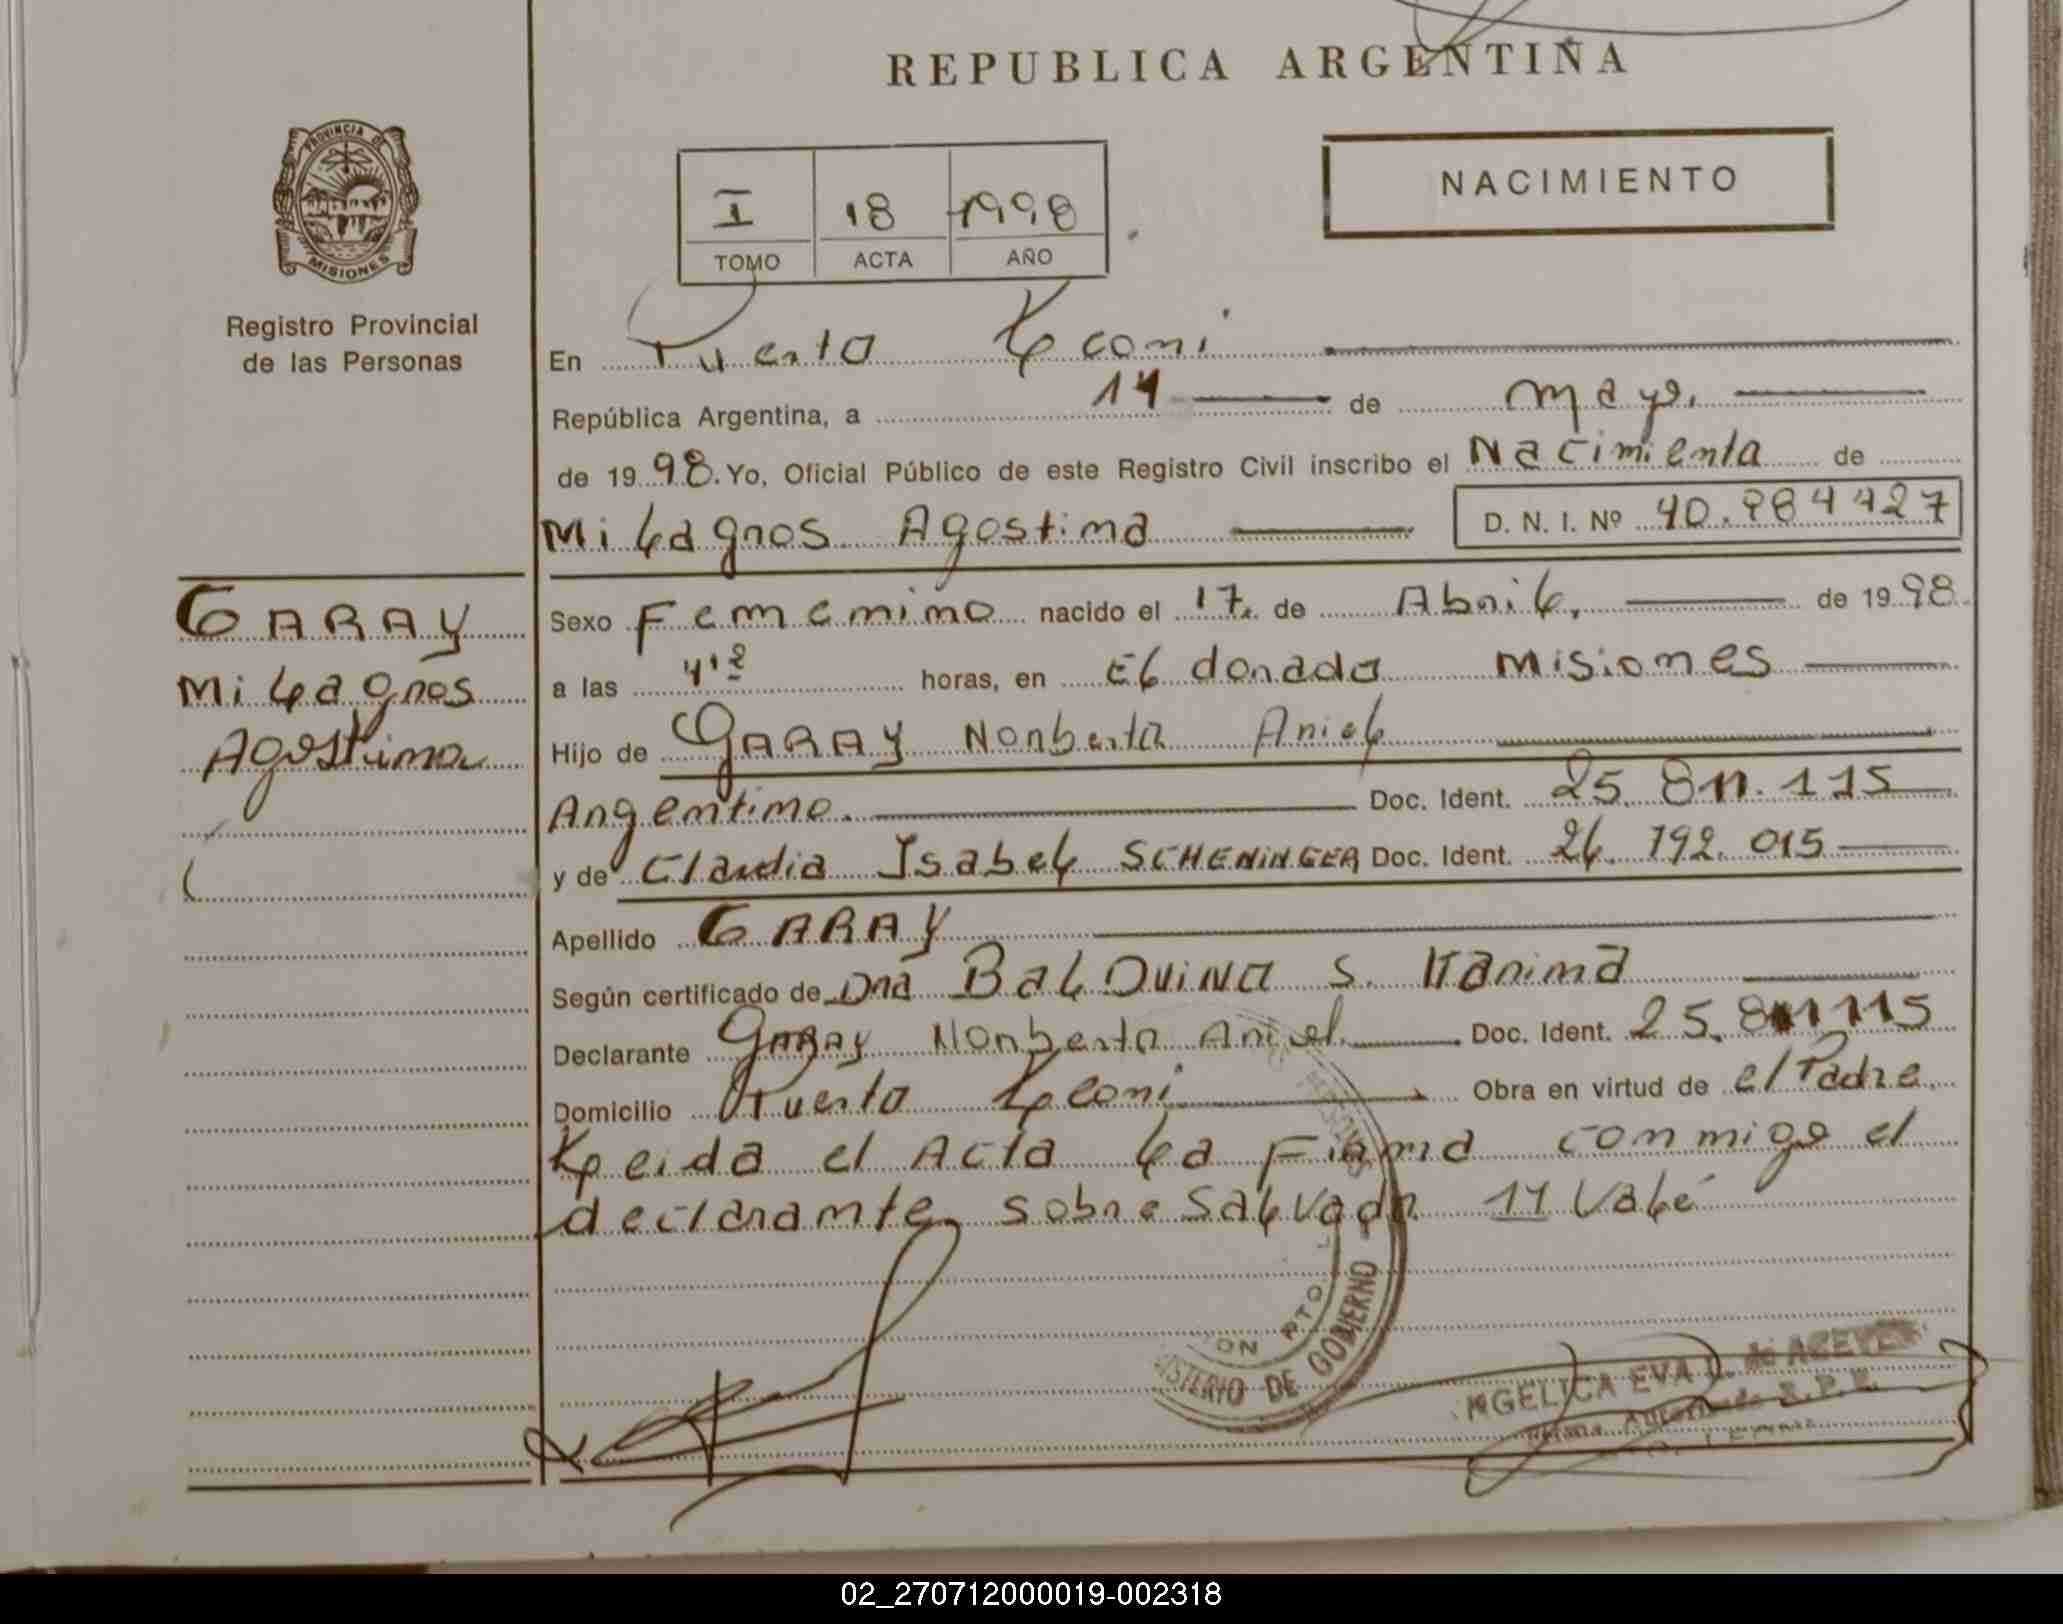 REPUBLICA ARGENTINA
PROVINCIA DE
MISIONES
Registro Provincial
de las Personas
I 18 1998
TOMO ACTA AÑO
NACIMIENTO
En Puerto Leoni
República Argentina, a 14 de mayo.
de 1998. Yo, Oficial Público de este Registro Civil inscribo el Nacimiento de
Milagros Agostina D. N. I. Nº 40.984427
GARAY
Milagros
Agostina
Sexo Femenino nacido el 17. de Abril, de 1998
a las horas, en Eldorado Misiones
Hijo de GARAY Norberto Ariel
Argentino. Doc. Ident. 25.811.115
y de Claudia Isabel SCHENiNGER Doc. Ident. 26.192.015
Apellido GARAY
Según certificado de Dra BalDuiNa S. Karina
Declarante GARAY Norberto Ariel. Doc. Ident. 25.811115
Domicilio Puerto Leoni Obra en virtud de el Padre
Leida el Acta la Firma conmigo el
declarante, sobre Salvado 11 Valé
MINISTERIO DE GOBIERNO
ANGELICA EVA L. de ACEVEDO
02_270712000019-002318